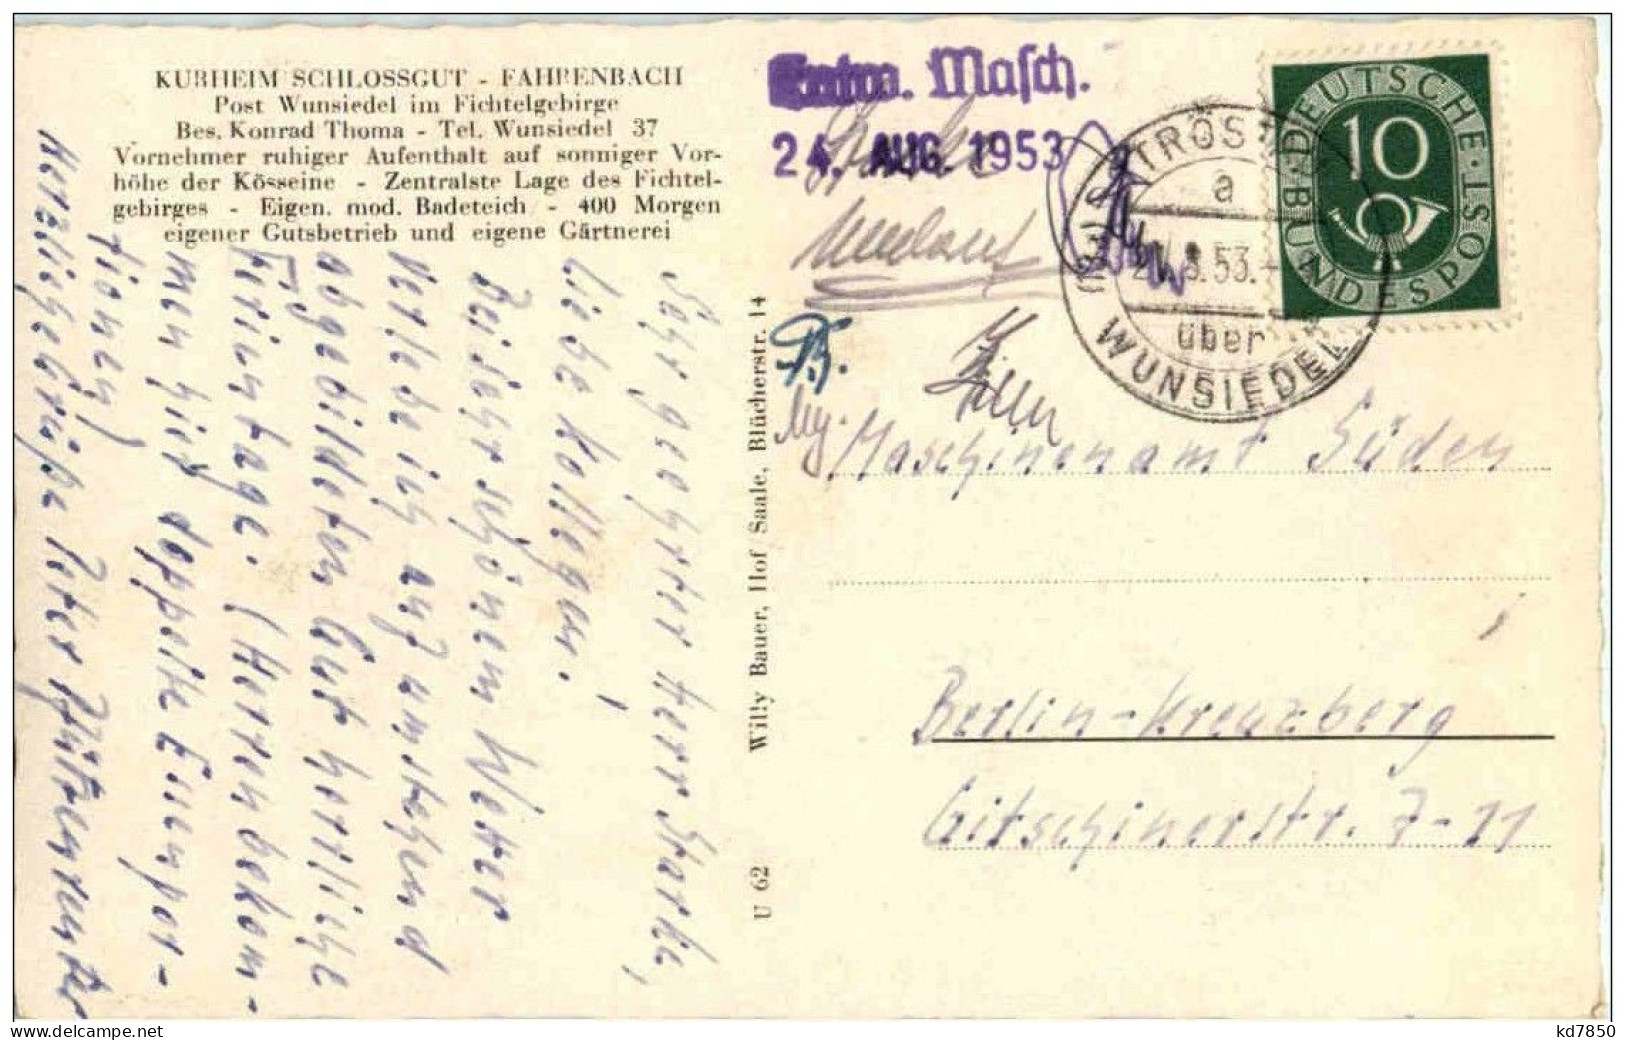 KURHEIM SCHLOSSGUT - FAHRENBACH
Post Wunsiedel im Fichtelgebirge
Bes. Konrad Thoma - Tel. Wunsiedel 37
Vornehmer ruhiger Aufenthalt auf sonniger Vor-
höhe der Kösseine - Zentralste Lage des Fichtel-
gebirges - Eigen. mod. Badeteich - 400 Morgen
eigener Gutsbetrieb und eigene Gärtnerei
Sehr geehrter Herr Starke,
liebe Kollegen!
Bei sehr schönem Wetter
verlebe ich auf umstehend
abgebildeten Gut herrliche
Ferientage. (Herren bekom-
men hier doppelte Essenpor-
tionen)
Herzliche Grüße
Willy Bauer, Hof Saale, Blücherstr. 14
U 62
Masch.
24. AUG. 1953
TRÖST
a
8.53.
über
WUNSIEDEL
DEUTSCHE BUNDESPOST
10
Maschinenamt Süden
Berlin-Kreuzberg
Gitschinerstr. 7-11
kd7850